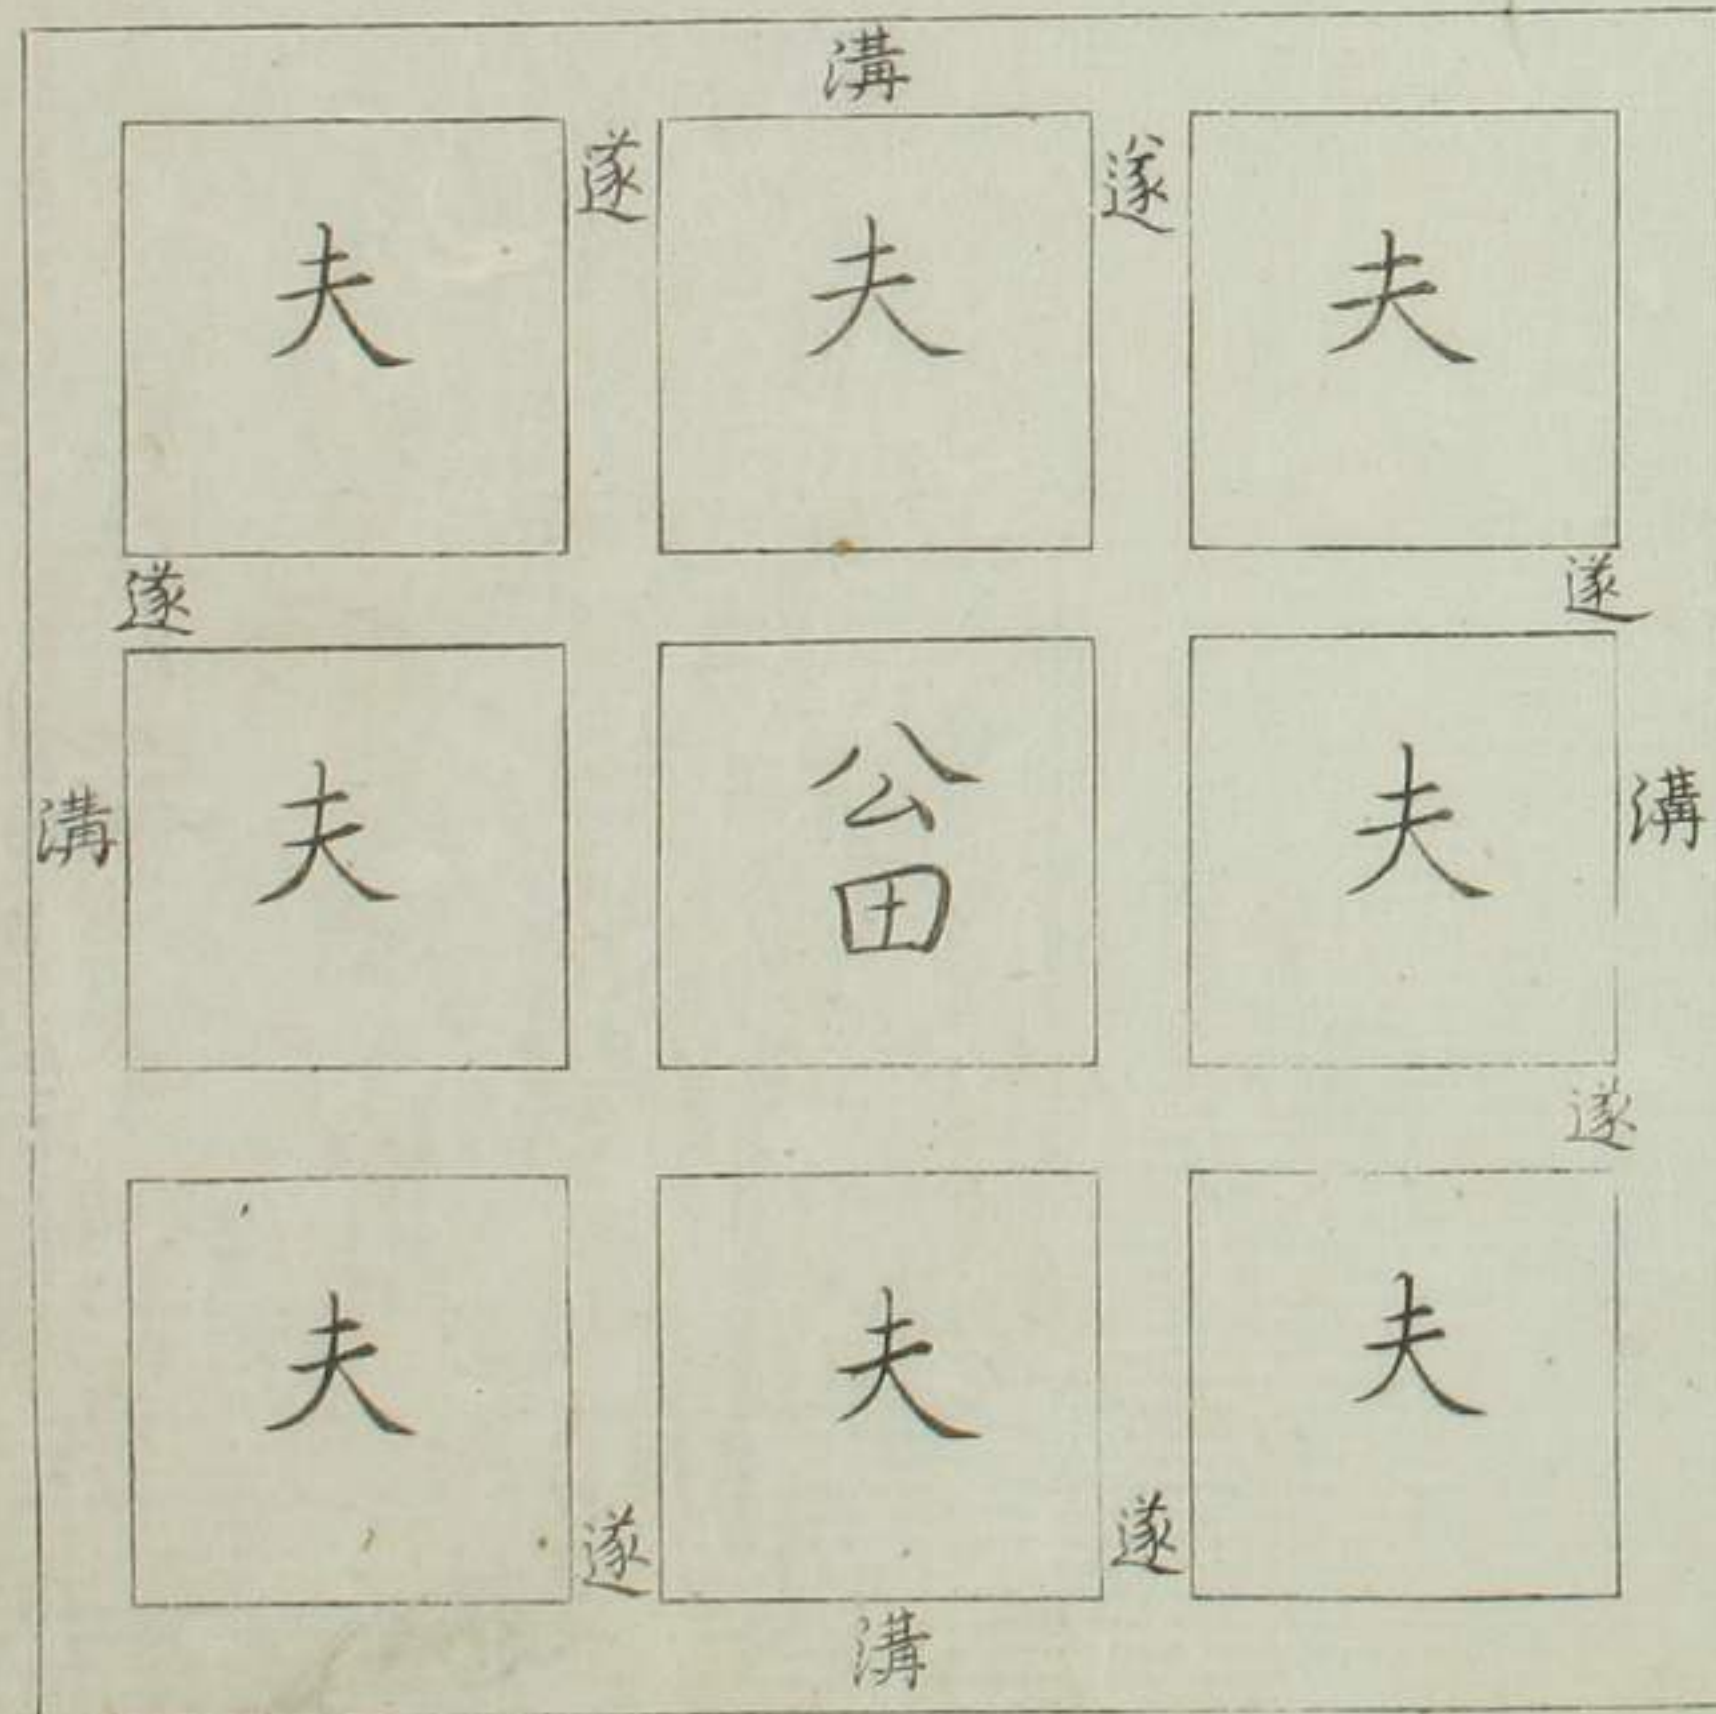 溝
遂
遂
夫
夫
夫
遂
遂
溝
夫
公田
夫
溝
遂
夫
夫
夫
遂
遂
溝